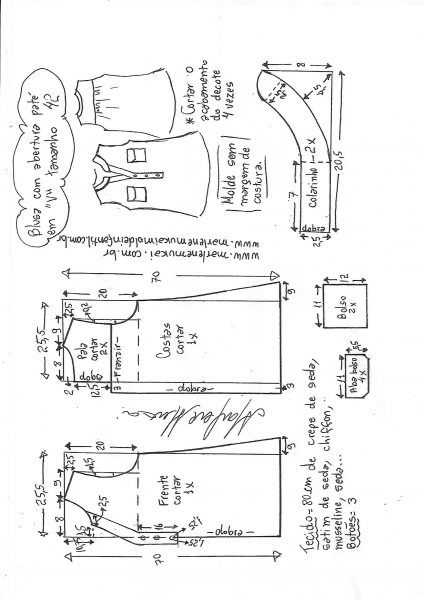 Blusa com abertura patê
em "V" tamanho 42
* Cortar o
acabamento
do decote
4 vezes
Molde sem
margem de
costura.
www.marlenemukai.com.br
www.marlenemukaimoldeinfantil.com.br
8
2,5
7
20,5
2,5
dobra
Colarinho 1-2x
70
25,5
20
2,5
9
8
2
12,5
3
9
3
Pala
cortar
2x
dobra
Franzir
Costas
cortar
1x
dobra
11
12
Bolso
2x
11
5,5
Aba bolso
4x
25,5
9
8
2,5
1,5
2,5
16
1,25
9
70
Frente
cortar
1x
dobra
Tecido = 80cm de crepe de seda,
satim de seda, chiffon,
musseline, seda...
Botões = 3